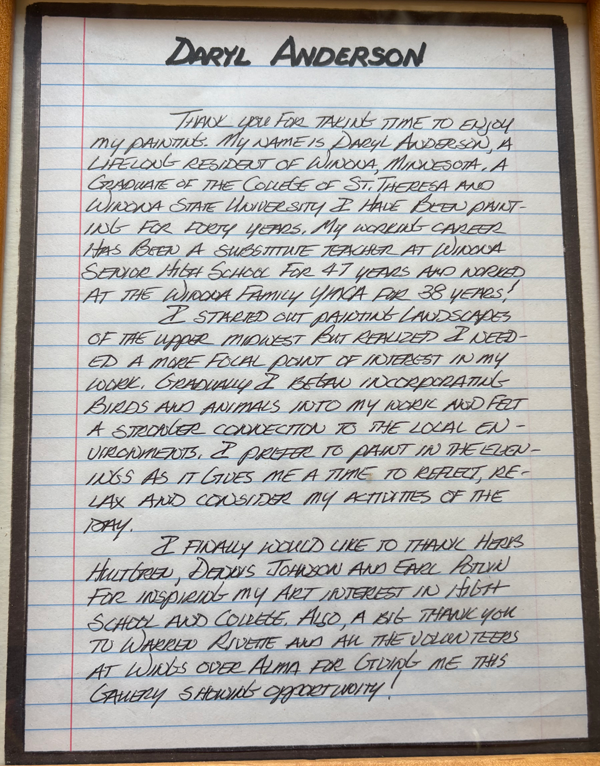 DARYL ANDERSON
THANK YOU FOR TAKING TIME TO ENJOY
MY PAINTING. MY NAME IS DARYL ANDERSON, A
LIFELONG RESIDENT OF WINONA, MINNESOTA. A
GRADUATE OF THE COLLEGE OF ST. THERESA AND
WINONA STATE UNIVERSITY I HAVE BEEN PAINT-
ING FOR FORTY YEARS. MY WORKING CAREER
HAS BEEN A SUBSTITUTE TEACHER AT WINONA
SENIOR HIGH SCHOOL FOR 47 YEARS AND WORKED
AT THE WINONA FAMILY YMCA FOR 38 YEARS!
I STARTED OUT PAINTING LANDSCAPES
OF THE UPPER MIDWEST BUT REALIZED I NEED-
ED A MORE FOCAL POINT OF INTEREST IN MY
WORK. GRADUALLY I BEGAN INCORPORATING
BIRDS AND ANIMALS INTO MY WORK AND FELT
A STRONGER CONNECTION TO THE LOCAL EN-
VIRONMENTS. I PREFER TO PAINT IN THE EVEN-
INGS AS IT GIVES ME A TIME TO REFLECT, RE-
LAX AND CONSIDER MY ACTIVITIES OF THE
DAY.
I FINALLY WOULD LIKE TO THANK HERB
HULTGREN, DENNYS JOHNSON AND EARL POTVIN
FOR INSPIRING MY ART INTEREST IN HIGH
SCHOOL AND COLLEGE. ALSO, A BIG THANK YOU
TO WARREN RIVETTE AND ALL THE VOLUNTEERS
AT WINGS OVER ALMA FOR GIVING ME THIS
GALLERY SHOWING OPPORTUNITY!